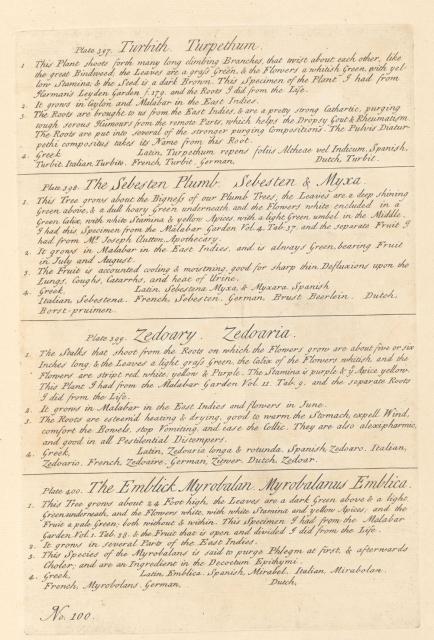 Plate 397. Turbith. Turpethum.
1 This Plant shoots forth many long climbing Branches, that twist about each other, like
the great Bindweed, the Leaves are a grass Green, & the Flowers a whitish Green, with yel-
low Stamina, & the Seed is a dark Brown. This Specimen of the Plant I had from
Harman's Leyden Garden f. 179. and the Roots I did from the Life.
2. It grows in Ceylon and Malabar in the East Indies.
3 The Roots are brought to us from the East Indies, & are a pretty strong Cathartic, purging
tough serous Humours from the remote Parts, which helps the Dropsy Gout & Rheumatism.
The Roots are put into several of the stronger purging Compositions. The Pulvis Diatur-
pethi compositus takes its Name from this Root.
4. Greek, Latin, Turpethum repens foliis Altheae vel Indicum, Spanish,
Turbit. Italian, Turbito. French, Turbit. German, Dutch, Turbit.
Plate 398. The Sebesten Plumb. Sebesten & Myxa.
1. This Tree grows about the Bigness of our Plumb Trees, the Leaves are a deep shining
Green above, & a dull hoary Green underneath and the Flowers white included in a
Green Calix, with white Stamina & yellow Apices, with a light Green umbel in the Middle.
I had this Specimen from the Malabar Garden Vol. 4. Tab. 37. and the separate Fruit I
had from Mr. Joseph Clutton, Apothecary.
2. It grows in Malabar in the East Indies, and is always Green, bearing Fruit
in July and August.
3. The Fruit is accounted cooling & moistning, good for sharp thin Defluxions upon the
Lungs, Coughs, Catarrhs, and heat of Urine.
4. Greek, Latin, Sebestena Myxa, & Myxara. Spanish
Italian, Sebestena. French, Sebesten. German, Brust Beerlein. Dutch,
Borst-pruimen.
Plate 399. Zedoary. Zedoaria.
1. The Stalks that shoot from the Roots on which the Flowers grow are about five or six
Inches long, & the Leaves a light grass Green, the Calix of the Flowers whitish, and the
Flowers are stript red, white, yellow & Purple. The Stamina is purple & ye Apice yellow.
This Plant I had from the Malabar Garden Vol. 11. Tab. 9. and the separate Roots
I did from the Life.
2. It grows in Malabar in the East Indies and flowers in June.
3. The Roots are esteem'd heating & drying, good to warm the Stomach, expell Wind,
comfort the Bowels, stop Vomiting, and ease the Collic. They are also alexipharmic,
and good in all Pestilential Distempers.
4. Greek, Latin, Zedoaria longa & rotunda. Spanish Zedoaro. Italian,
Zedoario. French, Zedoaire. German, Zitwer. Dutch, Zedoar.
Plate 400. The Emblick Myrobalan. Myrobalanus Emblica.
1. This Tree grows about 24 Foot high, the Leaves are a dark Green above & a light
Green underneath, and the Flowers white, with white Stamina and yellow Apices, and the
Fruit a pale Green, both without & within. This Specimen I had from the Malabar
Garden Vol. 1. Tab. 38. & the Fruit that is open and divided I did from the Life.
2. It grows in several Parts of the East Indies.
3 This Species of the Myrobalans is said to purge Phlegm at first, & afterwards
Choler; and are an Ingredient in the Decoctum Epithymi.
4. Greek, Latin, Emblica. Spanish, Mirabel. Italian, Mirabolan.
French, Myrobolans. German, Dutch,
No. 100.